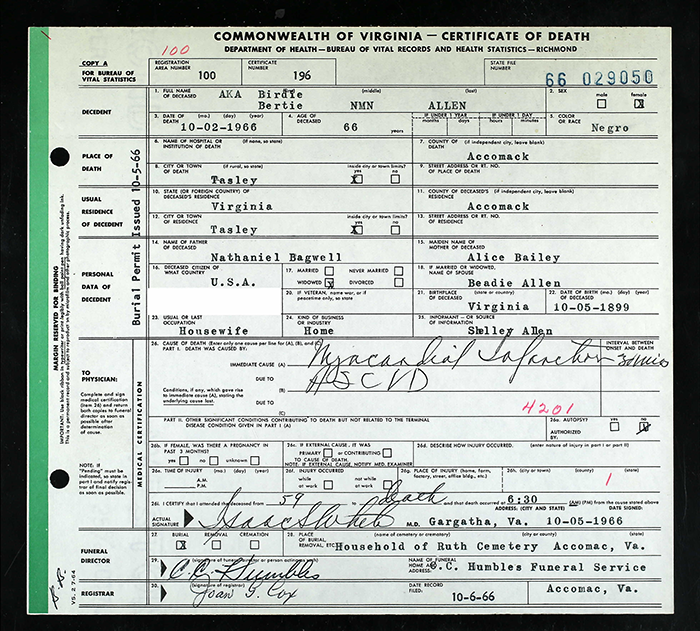 COMMONWEALTH OF VIRGINIA — CERTIFICATE OF DEATH
DEPARTMENT OF HEALTH—BUREAU OF VITAL RECORDS AND HEALTH STATISTICS—RICHMOND
100
COPY A
FOR BUREAU OF
VITAL STATISTICS
REGISTRATION
AREA NUMBER 100
CERTIFICATE
NUMBER 196
STATE FILE
NUMBER 66 029050
DECEDENT
1. FULL NAME OF DECEASED (first) (middle) (last)
AKA Birdie
Bertie NMN ALLEN
2. SEX male female X
3. DATE OF DEATH (mo.) (day) (year)
10-02-1966
4. AGE OF DECEASED 66 years
IF UNDER 1 YEAR months days
IF UNDER 1 DAY hours minutes
5. COLOR OR RACE
Negro
PLACE OF DEATH
6. NAME OF HOSPITAL OR INSTITUTION OF DEATH (if none, so state)
7. COUNTY OF DEATH (if independent city, leave blank)
Accomack
8. CITY OR TOWN OF DEATH (if rural, so state) inside city or town limits? yes X no
Tasley
9. STREET ADDRESS OR RT. NO. OF PLACE OF DEATH
USUAL RESIDENCE OF DECEDENT
10. STATE (OR FOREIGN COUNTRY) OF DECEASED'S RESIDENCE
Virginia
11. COUNTY OF DECEASED'S RESIDENCE (if independent city, leave blank)
Accomack
12. CITY OR TOWN OF RESIDENCE inside city or town limits? yes X no
Tasley
13. STREET ADDRESS OR RT. NO. OF RESIDENCE
PERSONAL DATA OF DECEDENT
14. NAME OF FATHER OF DECEASED
Nathaniel Bagwell
15. MAIDEN NAME OF MOTHER OF DECEASED
Alice Bailey
16. DECEASED CITIZEN OF WHAT COUNTRY
U.S.A.
17. MARRIED NEVER MARRIED
WIDOWED X DIVORCED
18. IF MARRIED OR WIDOWED, NAME OF SPOUSE
Beadie Allen
20. IF VETERAN, name war, or if peacetime only, so state
21. BIRTHPLACE (state or country)
Virginia
22. DATE OF BIRTH (mo.) (day) (year)
10-05-1899
23. USUAL OR LAST OCCUPATION
Housewife
24. KIND OF BUSINESS OR INDUSTRY
Home
25. INFORMANT—OR SOURCE OF INFORMATION
Shelley Allen
Burial Permit Issued 10-5-66
MARGIN RESERVED FOR BINDING
TO PHYSICIAN:
Complete and sign medical certification (item 26) and return both copies to funeral director as soon as possible after determination of cause.
MEDICAL CERTIFICATION
26. CAUSE OF DEATH (Enter only one cause per line for (A), (B), and (C))
PART I. DEATH WAS CAUSED BY:
INTERVAL BETWEEN ONSET AND DEATH
IMMEDIATE CAUSE (A) Myocardial Infarction 30 mis
DUE TO
(B) HSCVD
Conditions, if any, which gave rise to immediate cause (A), stating the underlying cause last.
DUE TO
(C)
4201
PART II. OTHER SIGNIFICANT CONDITIONS CONTRIBUTING TO DEATH BUT NOT RELATED TO THE TERMINAL DISEASE CONDITION GIVEN IN PART I (A)
26a. AUTOPSY? yes no X
AUTHORIZED BY:
NOTE: If "Pending" must be indicated, so state in part I and notify registrar of final decision as soon as possible.
26b. IF FEMALE, WAS THERE A PREGNANCY IN PAST 3 MONTHS? yes no unknown
26c. IF EXTERNAL CAUSE, IT WAS PRIMARY or CONTRIBUTING TO CAUSE OF DEATH.
NOTE: IF EXTERNAL CAUSE, NOTIFY MED. EXAMINER
26d. DESCRIBE HOW INJURY OCCURRED. (enter nature of injury in part I or part II)
26e. TIME OF INJURY (mo.) (day) (year) A.M. P.M.
26f. INJURY OCCURRED while at work not while at work
26g. PLACE OF INJURY (home, farm, factory, street, office bldg., etc.)
26h. (city or town) (county) (state)
1
26i. I CERTIFY that I attended the deceased from 59 to death and that death occurred at 6:30 (AM) (PM) from the cause stated above
ACTUAL SIGNATURE M.D.
ADDRESS: (CITY AND STATE) DATE SIGNED:
Gargatha, Va. 10-05-1966
FUNERAL DIRECTOR
27. BURIAL X REMOVAL CREMATION
28. PLACE OF BURIAL, REMOVAL, ETC. (name of cemetery or crematory) (city or county) (state)
Household of Ruth Cemetery Accomac, Va.
29. (signature of funeral director or person acting as such)
C.C. Humbles
NAME OF FUNERAL HOME AND ADDRESS: C.C. Humbles Funeral Service
Accomac, Va.
REGISTRAR
30. (signature of registrar)
Joan G. Cox
DATE RECORD FILED: 10-6-66
VS. 2 7-64